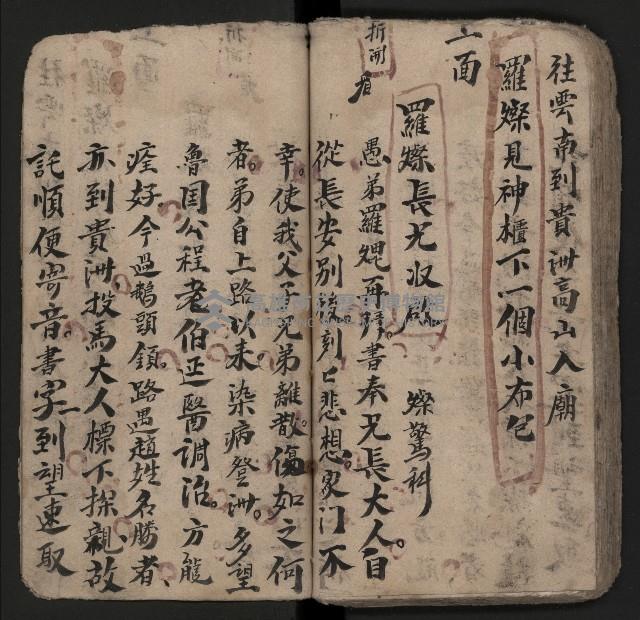 往雲南到貴洲高山入廟
羅燦見神櫃下一個小布包
上面
羅燦長兄收啟 燦驚科
折開看
愚弟羅焜再拜書奉兄長大人。自
從長安別後。刻亡悲想。家门不
幸。使我父子兄弟離散。傷如之何
者。弟自上路以来。染病登洲。多望
魯国公程老伯莚醫調治。方能
痊好。今過鵝頭鎮。路遇趙姓名勝者、
亦到貴洲投馬大人標下探親。故
託順便寄音。書字一到。望速取
高雄市立歷史博物館
KAOHSIUNG MUSEUM OF HISTORY